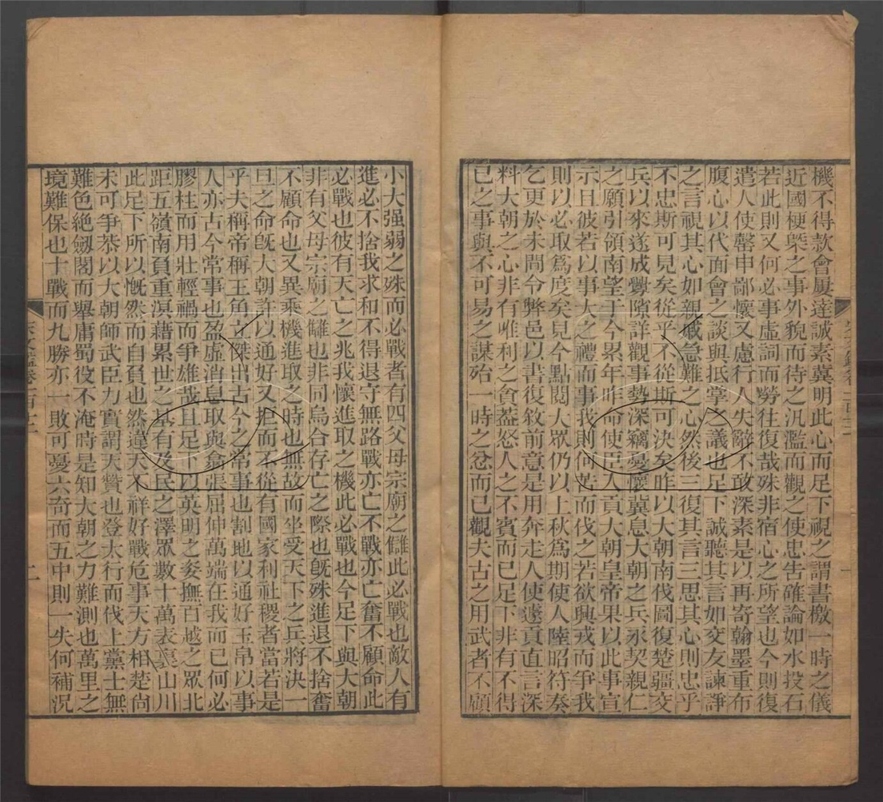 機不得款會屢達誠素冀明此心而足下視之謂書檄一時之儀
近國梗槩之事外貌而待之汎濫而觀之使忠告確論如水投石
若此則又何必事虛詞而勞往復哉殊非宿心之所望也今則復
遣人使罄申鄙懷又慮行人失辭不敢深素是以再寄翰墨重布
腹心以代面會之談與抵掌之議也足下誠聽其言如交友諫諍
之言視其心如親戚急難之心然後三復其言三思其心則忠乎
不忠斯可見矣從乎不從斯可決矣昨以大朝南伐圖復楚疆交
兵以來遂成釁隙詳觀事勢深竊憂懷冀息大朝之兵永契親仁
之願引領南望于今累年昨命使臣入貢大朝皇帝果以此事宣
示且彼若以事大之禮而事我則何苦而伐之若欲興戎而爭我
則以必取為度矣見今點閱大眾仍以上秋為期使人陸昭符奏
乞更於未間令弊邑以書復敘前意是用奔走人使遽貢直言深
料大朝之心非有唯利之貪蓋怒人之不賓而已足下非有不得
已之事與不可易之謀殆一時之忿而已觀夫古之用武者不顧
小大强弱之殊而必戰者有四父母宗廟之讎此必戰也敵人有
進必不捨我求和不得退守無路戰亦亡不戰亦亡奮不顧命此
必戰也彼有天亡之兆我懷進取之機此必戰也今足下與大朝
非有父母宗廟之讎也非同烏合存亡之際也旣殊進退不捨奮
不顧命也又異乘機進取之時也無故而坐受天下之兵將決一
旦之命旣大朝許以通好又拒而不從有國家利社稷者當若是
乎夫稱帝稱王角立傑出古今之常事也割地以通好玉帛以事
人亦古今常事也盈虛消息取與翕張屈伸萬端在我而已何必
膠柱而用壯輕禍而爭雄哉且足下以英明之姿撫百越之眾北
距五嶺南負重溟藉累世之基有及民之澤眾數十萬表裏山川
此足下所以慨然而自負也然違天不祥好戰危事天方相楚尚
未可爭恭以大朝師武臣力實謂天贊也登太行而伐上黨士無
難色絶劒閣而舉庸蜀役不淹時是知大朝之力難測也萬里之
境難保也十戰而九勝亦一敗可憂六奇而五中則一失何補況
二